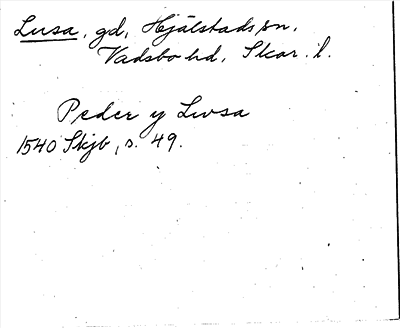 Lusa, gd, Hjälstads sn,
Vadsbo hd, Skar. l.
Peder y Lwsa
1540 Skjb, s. 49.